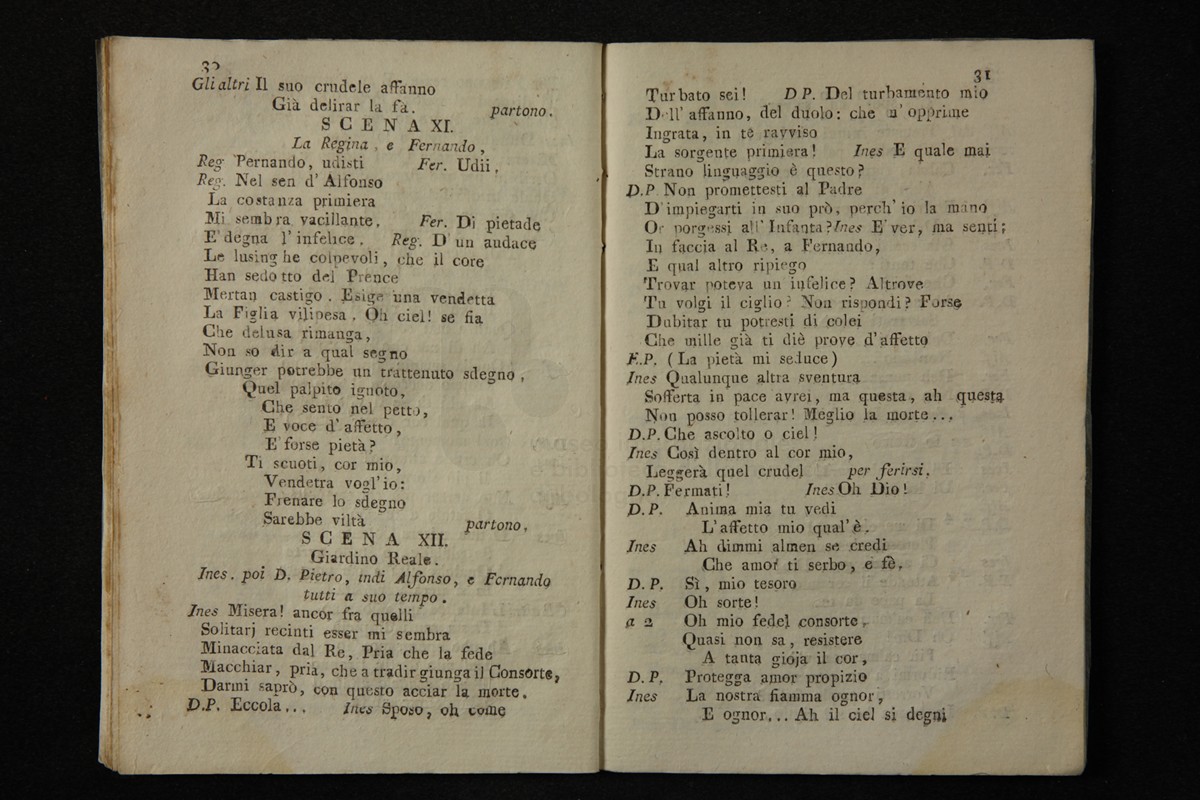 30
Gli altri Il suo crudele affanno
Già delirar la fa. partono.
SCENA XI.
La Regina, e Fernando,
Reg Pernando, udisti Fer. Udii.
Reg. Nel sen d'Alfonso
La costanza primiera
Mi sembra vacillante. Fer. Di pietade
E' degna l'infelice. Reg. D'un audace
Le lusinghe colpevoli, che il core
Han sedotto del Prence
Mertan castigo. Esige una vendetta
La Figlia vilipesa. Oh ciel! se fia
Che delusa rimanga,
Non so dir a qual segno
Giunger potrebbe un trattenuto sdegno,
Quel palpito ignoto,
Che sento nel petto,
E voce d'affetto,
E' forse pietà?
Ti scuoti, cor mio,
Vendetra vogl'io:
Frenare lo sdegno
Sarebbe viltà partono.
SCENA XII.
Giardino Reale.
Ines. poi D. Pietro, indi Alfonso, e Fernando
tutti a suo tempo.
Ines Misera! ancor fra quelli
Solitarj recinti esser mi sembra
Minacciata dal Re, Pria che la fede
Macchiar, pria, che a tradir giunga il Consorte,
Darmi saprò, con questo acciar la morte.
D.P. Eccola... Ines Sposo, oh come
31
Turbato sei! D P. Del turbamento mio
Dell'affanno, del duolo: che m'opprime
Ingrata, in te ravviso
La sorgente primiera! Ines E quale mai
Strano linguaggio è questo?
D.P Non promettesti al Padre
D'impiegarti in suo prò, perch'io la mano
Or porgessi all'Infanta? Ines E' ver, ma senti;
In faccia al Re, a Fernando,
E qual altro ripiego
Trovar poteva un infelice? Altrove
Tu volgi il ciglio? Non rispondi? Forse
Dubitar tu potresti di colei
Che mille già ti diè prove d'affetto
F.P. (La pietà mi seduce)
Ines Qualunque altra sventura
Sofferta in pace avrei, ma questa, ah questa
Non posso tollerar! Meglio la morte...
D.P. Che ascolto o ciel!
Ines Così dentro al cor mio,
Leggerà quel crudel per ferirsi.
D.P. Fermati! Ines Oh Dio!
D.P. Anima mia tu vedi
L'affetto mio qual'è.
Ines Ah dimmi almen se credi
Che amor ti serbo, e fè.
D.P. Sì, mio tesoro
Ines Oh sorte!
a 2 Oh mio fedel consorte,
Quasi non sa, resistere
A tanta gioja il cor,
D.P. Protegga amor propizio
Ines La nostra fiamma ognor,
E ognor... Ah il ciel si degni